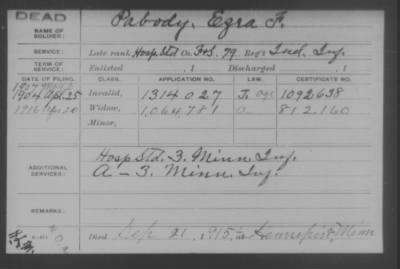 DEAD
NAME OF SOLDIER: Pabody, Ezra F.
SERVICE: Late rank Hosp Std Co. F&S, 79 Reg't Ind. Inf.
TERM OF SERVICE: Enlisted , 1 Discharged , 1
DATE OF FILING. CLASS. APPLICATION NO. LAW. CERTIFICATE NO.
1907
1904 Apl. 25 Invalid, 1314027 J. Age 1092638
1916 20 Widow, 1,064,781 812,160
Minor,
Hosp Std. 3. Minn. Inf.
ADDITIONAL SERVICES: A - 3. Minn. Inf.
REMARKS:
Died Sep 21, 1915, at Minn